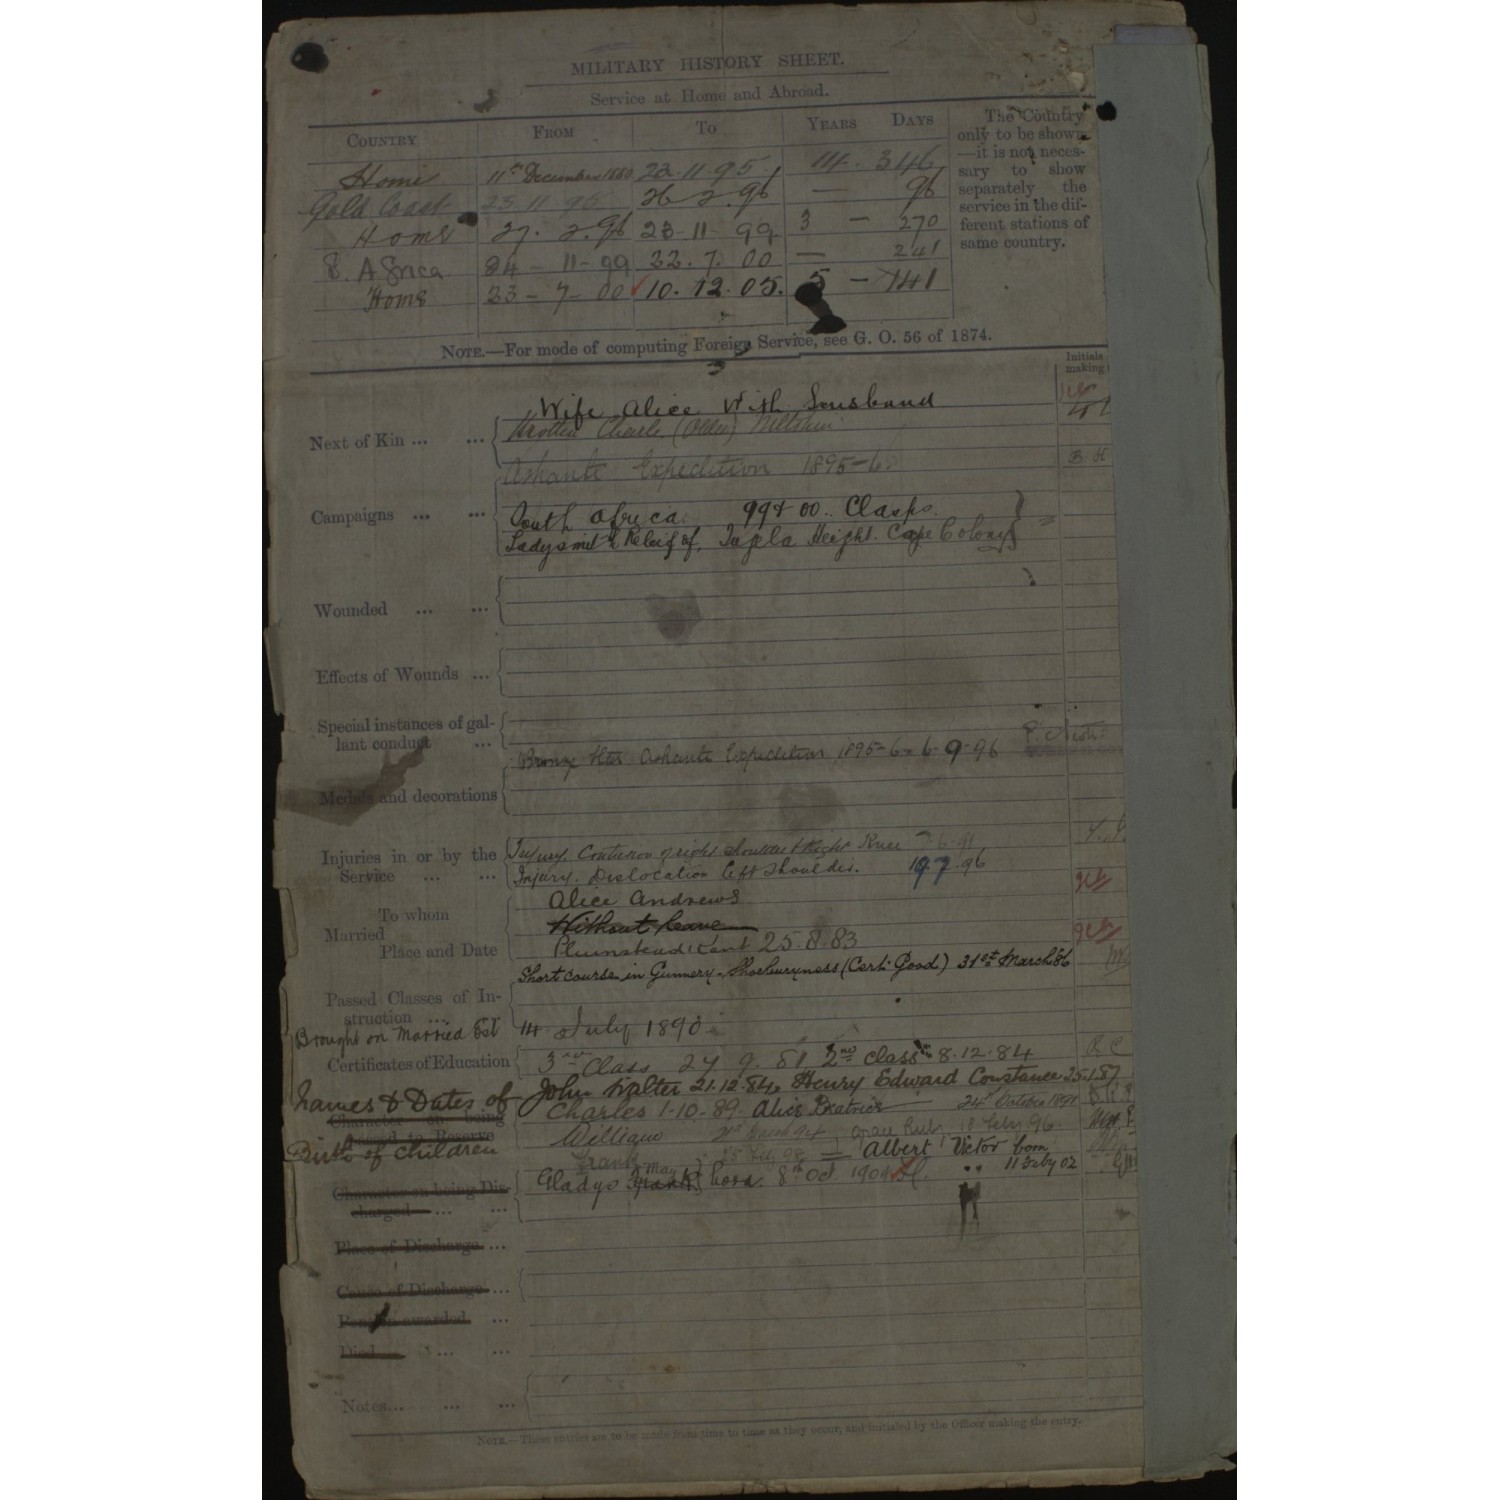 MILITARY HISTORY SHEET.
Service at Home and Abroad.
COUNTRY FROM TO YEARS DAYS
Home 11th December 1880 22.11.95 14. 346
Gold Coast 23 11 95 26 2.96 — 96
Home 27. 2.96 23-11-99 3 — 270
S. Africa 24-11-99 22.7.00 — 241
Home 23-7-00 10.12.05. 5 — 141
The Country
only to be shown
—it is not neces-
sary to show
separately the
service in the dif-
ferent stations of
same country.
NOTE.—For mode of computing Foreign Service, see G. O. 56 of 1874.
Initials
making
Wife Alice With Husband
Next of Kin ... ... Brother Charles (Older)
Ashanti Expedition 1895-6
Campaigns ... ... South Africa. 99 & 00. Clasps.
Ladysmith Relief of, Tugela Height. Cape Colony
Wounded ... ...
Effects of Wounds ...
Special instances of gal-
lant conduct ...
Bronze Star Ashanti Expedition 1895-6 6-9-96
Medals and decorations
Injuries in or by the Injury. Contusion of right shoulder & Right Knee 7-6-91
Service ... ... Injury. Dislocation left shoulder. 197.96
To whom Alice Andrews
Married Without leave
Place and Date Plumstead Kent 25.8.83
Short course in Gunnery-Shoeburyness (Cert. Good) 31st March 86
Passed Classes of In-
struction ... ...
Brought on Married Est 14 July 1890
Certificates of Education 3rd Class 27 9. 81 2nd class 8.12.84
Names & Dates of John Walter 21.12.84, Henry Edward Constance 25.1.87
Character on being Charles 1-10-89. Alice Beatrice 24th October 1891
passed to Reserve William 2nd March 94 Grace Ruby 10 Feby 96
Birth of Children Frank Albert Victor born
11 Feby 02
Character on being Dis- Gladys May Frank born. 8th Oct 1904
charged ... ...
Place of Discharge ...
Cause of Discharge ...
Pension awarded ...
Died ... ...
Notes... ... ...
NOTE.—These entries are to be made from time to time as they occur, and initialed by the Officer making the entry.